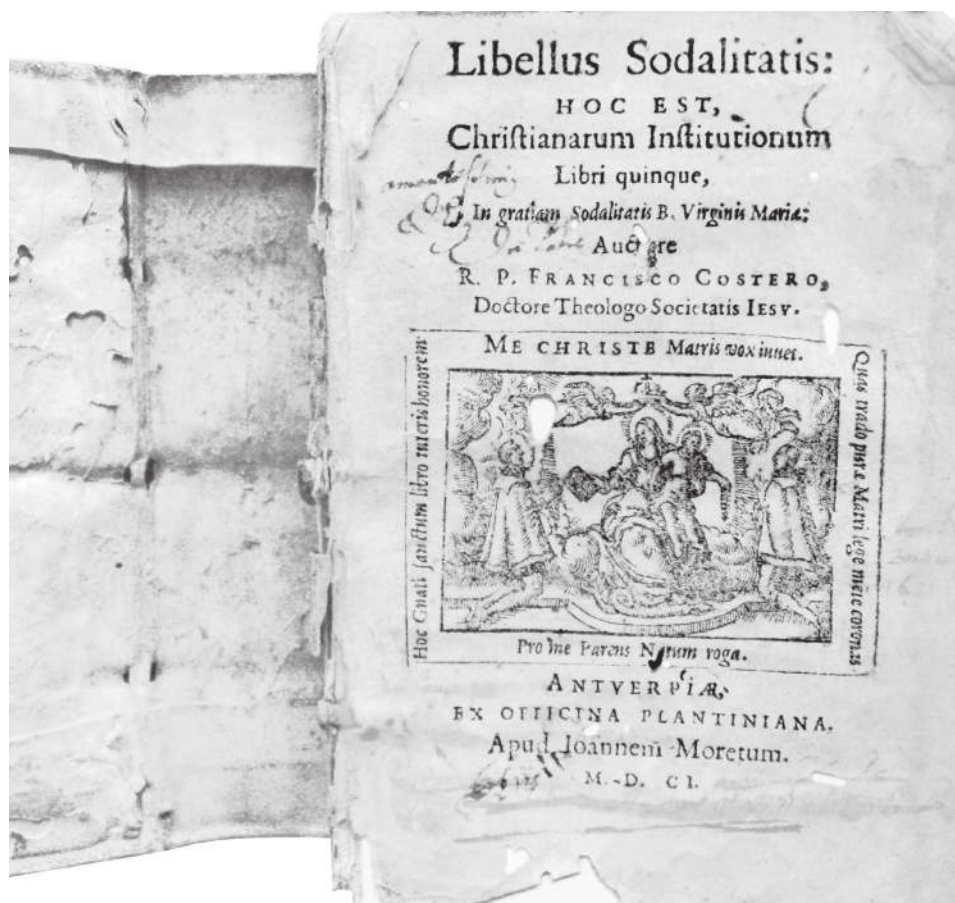 Libellus Sodalitatis:
HOC EST,
Chriſtianarum Inſtitutionum
Libri quinque,
In gratiam Sodalitatis B. Virginis Mariæ:
Auctore
R. P. FRANCISCO COSTERO,
Doctore Theologo Societatis IESV.
ME CHRISTE Matris vox iuuet.
Hoc Gnati ſanctum libro tueris honorem
Quas trado puræ Matri lege mete coronas
Pro me Parens Natum roga.
ANTVERPIÆ,
EX OFFICINA PLANTINIANA,
Apud Ioannem Moretum.
M. D. CI.